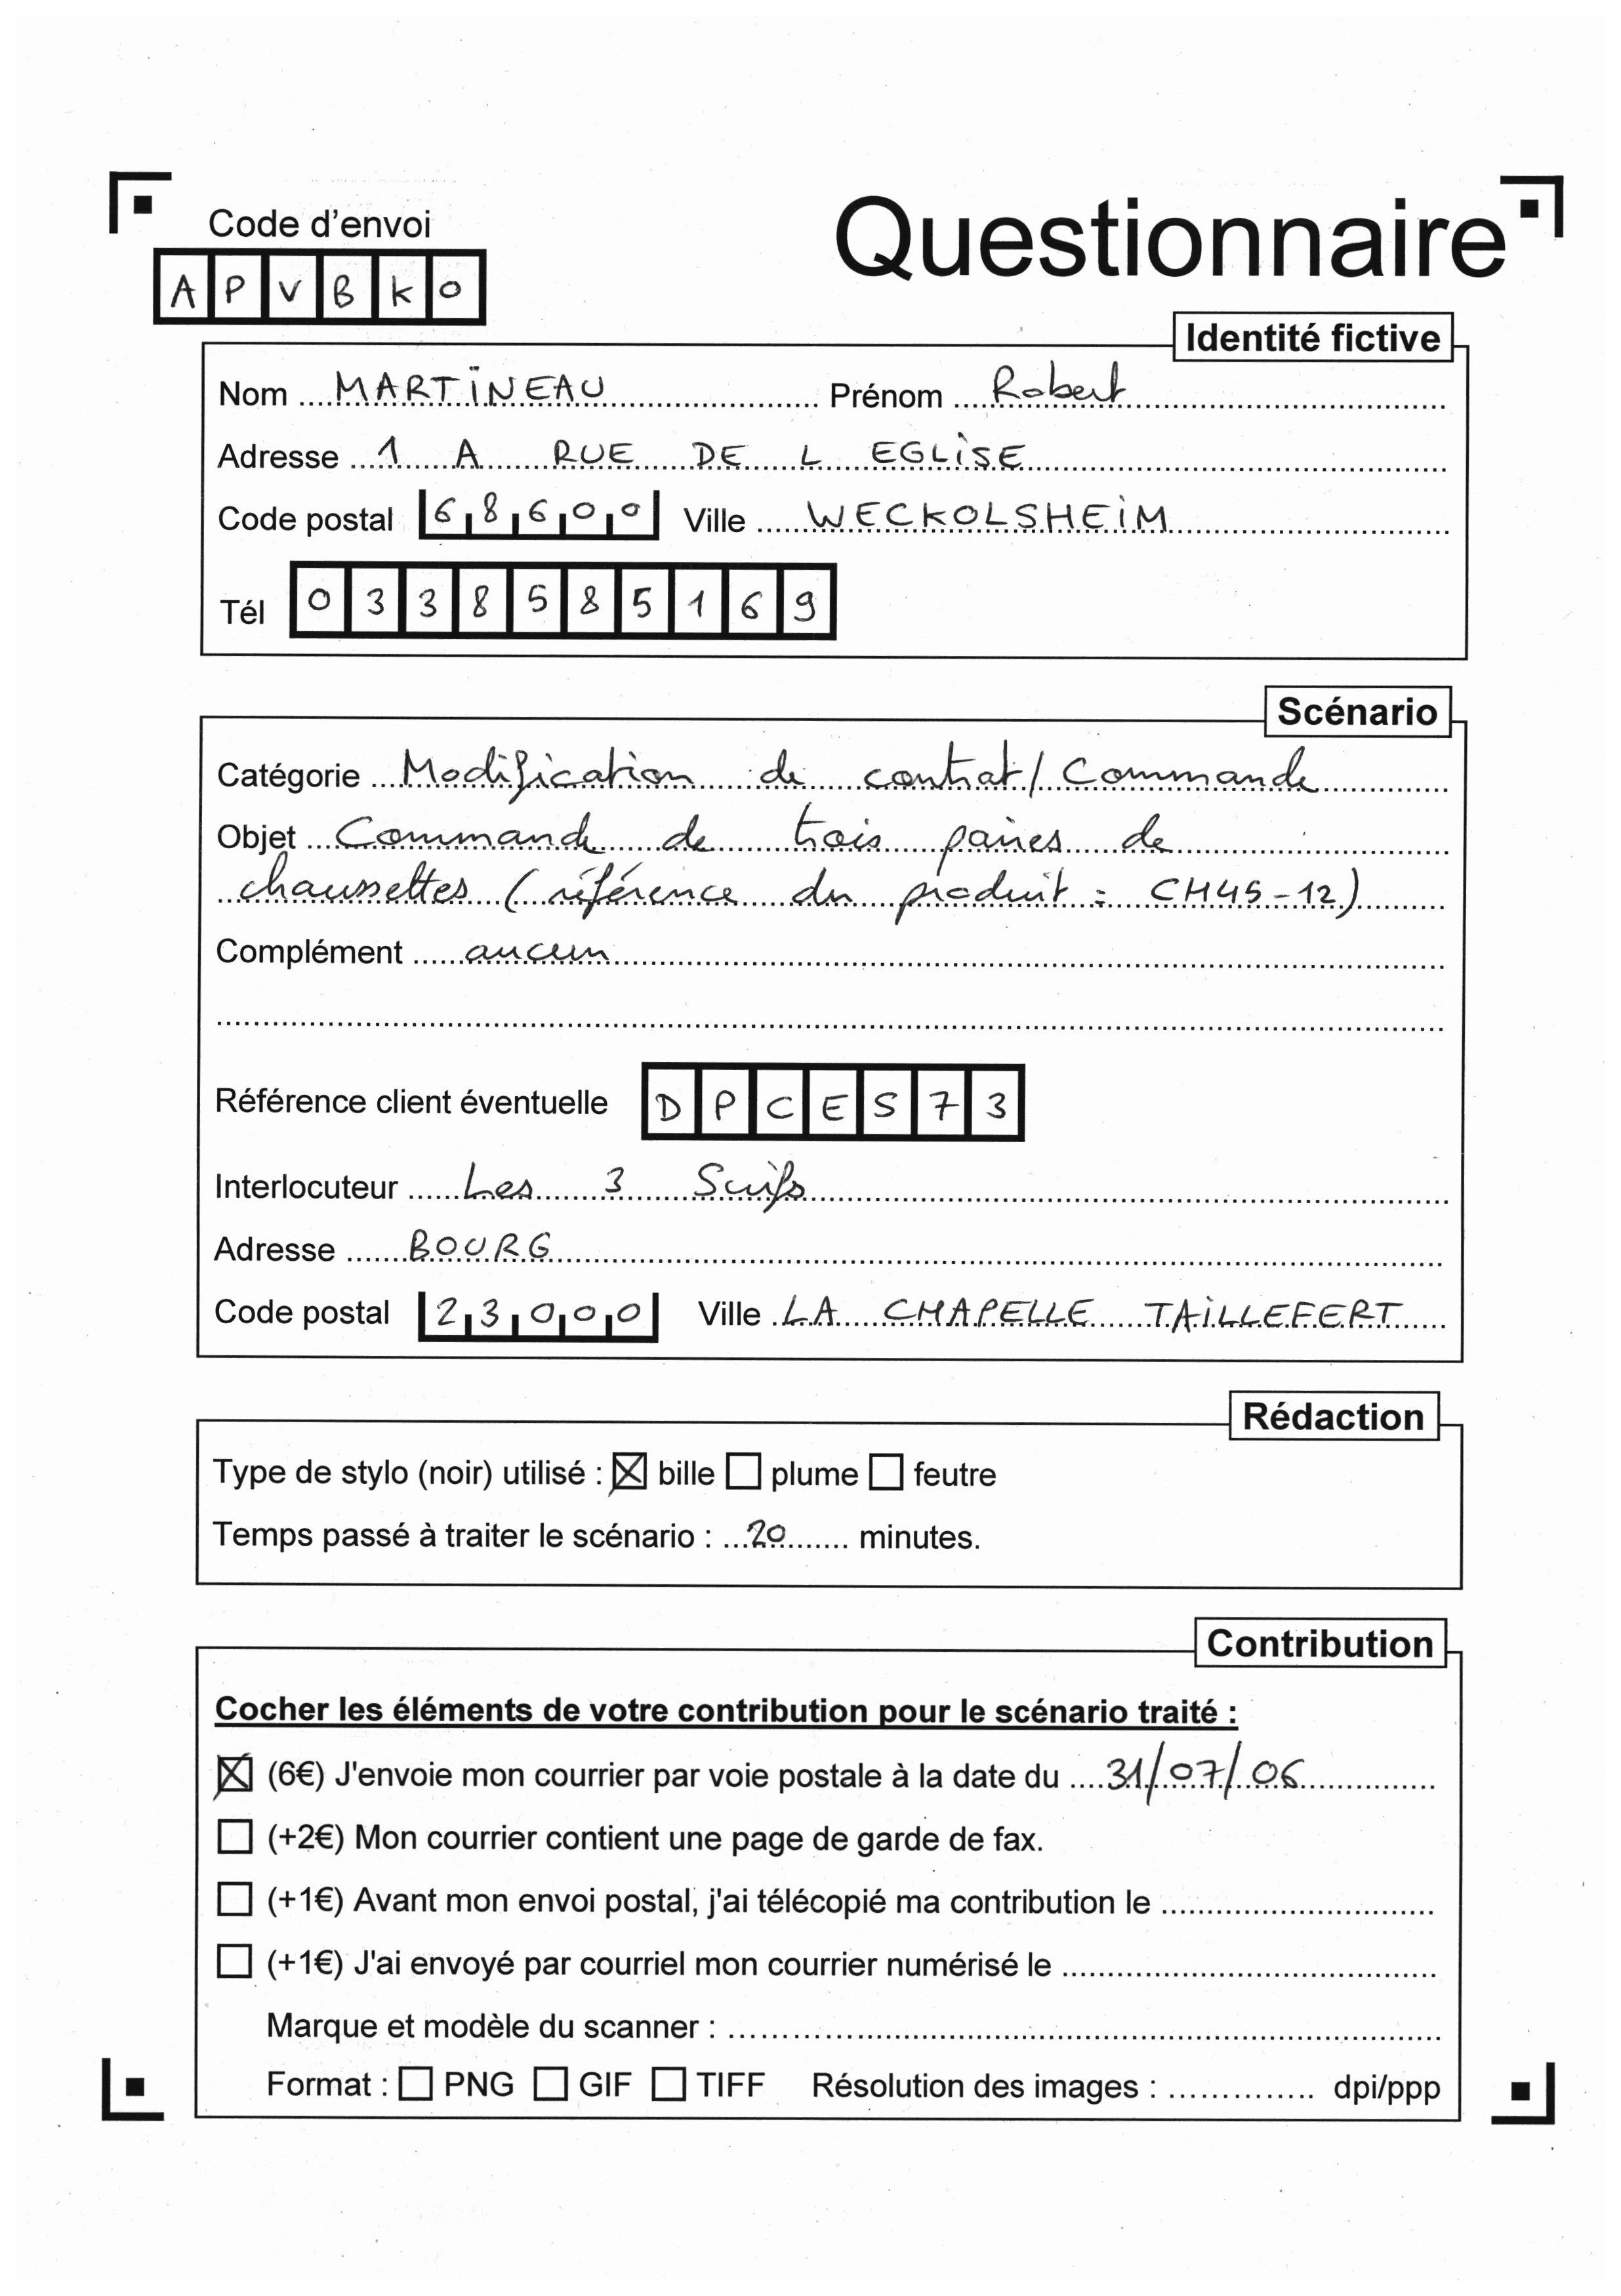 Code d'envoi
Questionnaire
A P V B K O
Identité fictive
Nom MARTINEAU Prénom Robert
Adresse 1 A RUE DE L EGLISE
Code postal 68600 Ville WECKOLSHEIM
Tél 0338585169
Scénario
Catégorie Modification de contrat/Commande
Objet Commande de trois paires de
chaussettes (référence du produit : CH45-12)
Complément aucun
Référence client éventuelle DPCES73
Interlocuteur Les 3 Suifs
Adresse BOURG
Code postal 23000 Ville LA CHAPELLE TAILLEFERT
Rédaction
Type de stylo (noir) utilisé : ☒ bille ☐ plume ☐ feutre
Temps passé à traiter le scénario : 20 minutes.
Contribution
Cocher les éléments de votre contribution pour le scénario traité :
☒ (6€) J'envoie mon courrier par voie postale à la date du 31/07/06
☐ (+2€) Mon courrier contient une page de garde de fax.
☐ (+1€) Avant mon envoi postal, j'ai télécopié ma contribution le
☐ (+1€) J'ai envoyé par courriel mon courrier numérisé le
Marque et modèle du scanner :
Format : ☐ PNG ☐ GIF ☐ TIFF Résolution des images : dpi/ppp